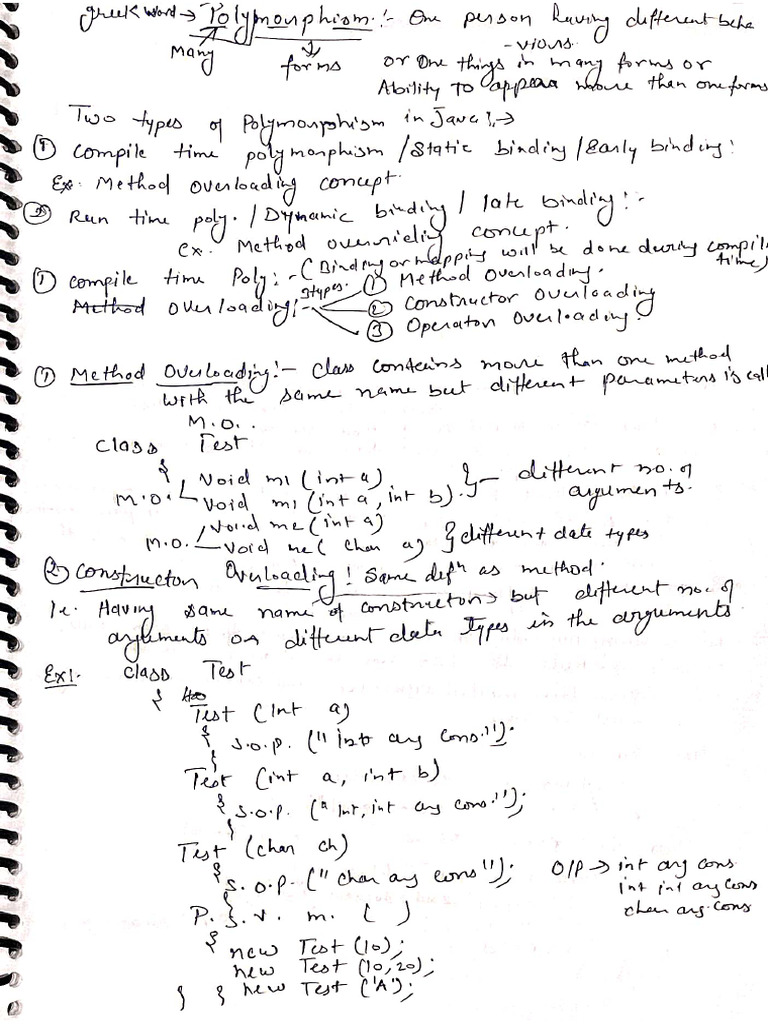 greek word → Polymorphism :- One person having different beha
-viors.
Many forms or One things in many forms or
Ability To appear more than one forms
Two types of Polymorphism in Java :→
① Compile time polymorphism / Static binding / Early binding :
Ex: Method overloading concept.
② Run time poly. / Dynamic binding / late binding :-
Ex. Method overriding concept.
① Compile time Poly :- (Binding or mapping will be done during compile time)
Method Overloading :- 3 types. ① Method Overloading.
② Constructor Overloading
③ Operator Overloading.
① Method Overloading :- Class contains more than one method
with the same name but different parameters is call
M.O..
Class Test
{
M.O. void m1 (int a)
void m1 (int a, int b) } - different no. of arguments.
M.O. void m2 (int a)
void m2 (char a) } different data types
② Constructor Overloading : Same defn as method.
i.e. Having same name of constructors but different no. of
arguments or different data types in the arguments.
Ex1. Class Test
{
Test (int a)
{ S.o.p. ("int arg cons.");
}
Test (int a, int b)
{ S.o.p. ("int, int arg cons.");
}
Test (char ch)
{
S.o.p. ("char arg cons"); O/P → int arg cons
} int int arg cons
P. S. v. m. ( ) char arg cons
{
new Test (10);
new Test (10, 20);
} } new Test ('A');